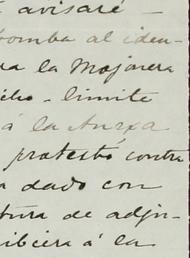 avisaré
bomba al iden-
la Mojonera
límite
á la Anexa
protestó contra
dado con
tura de adju-
ibiera á la